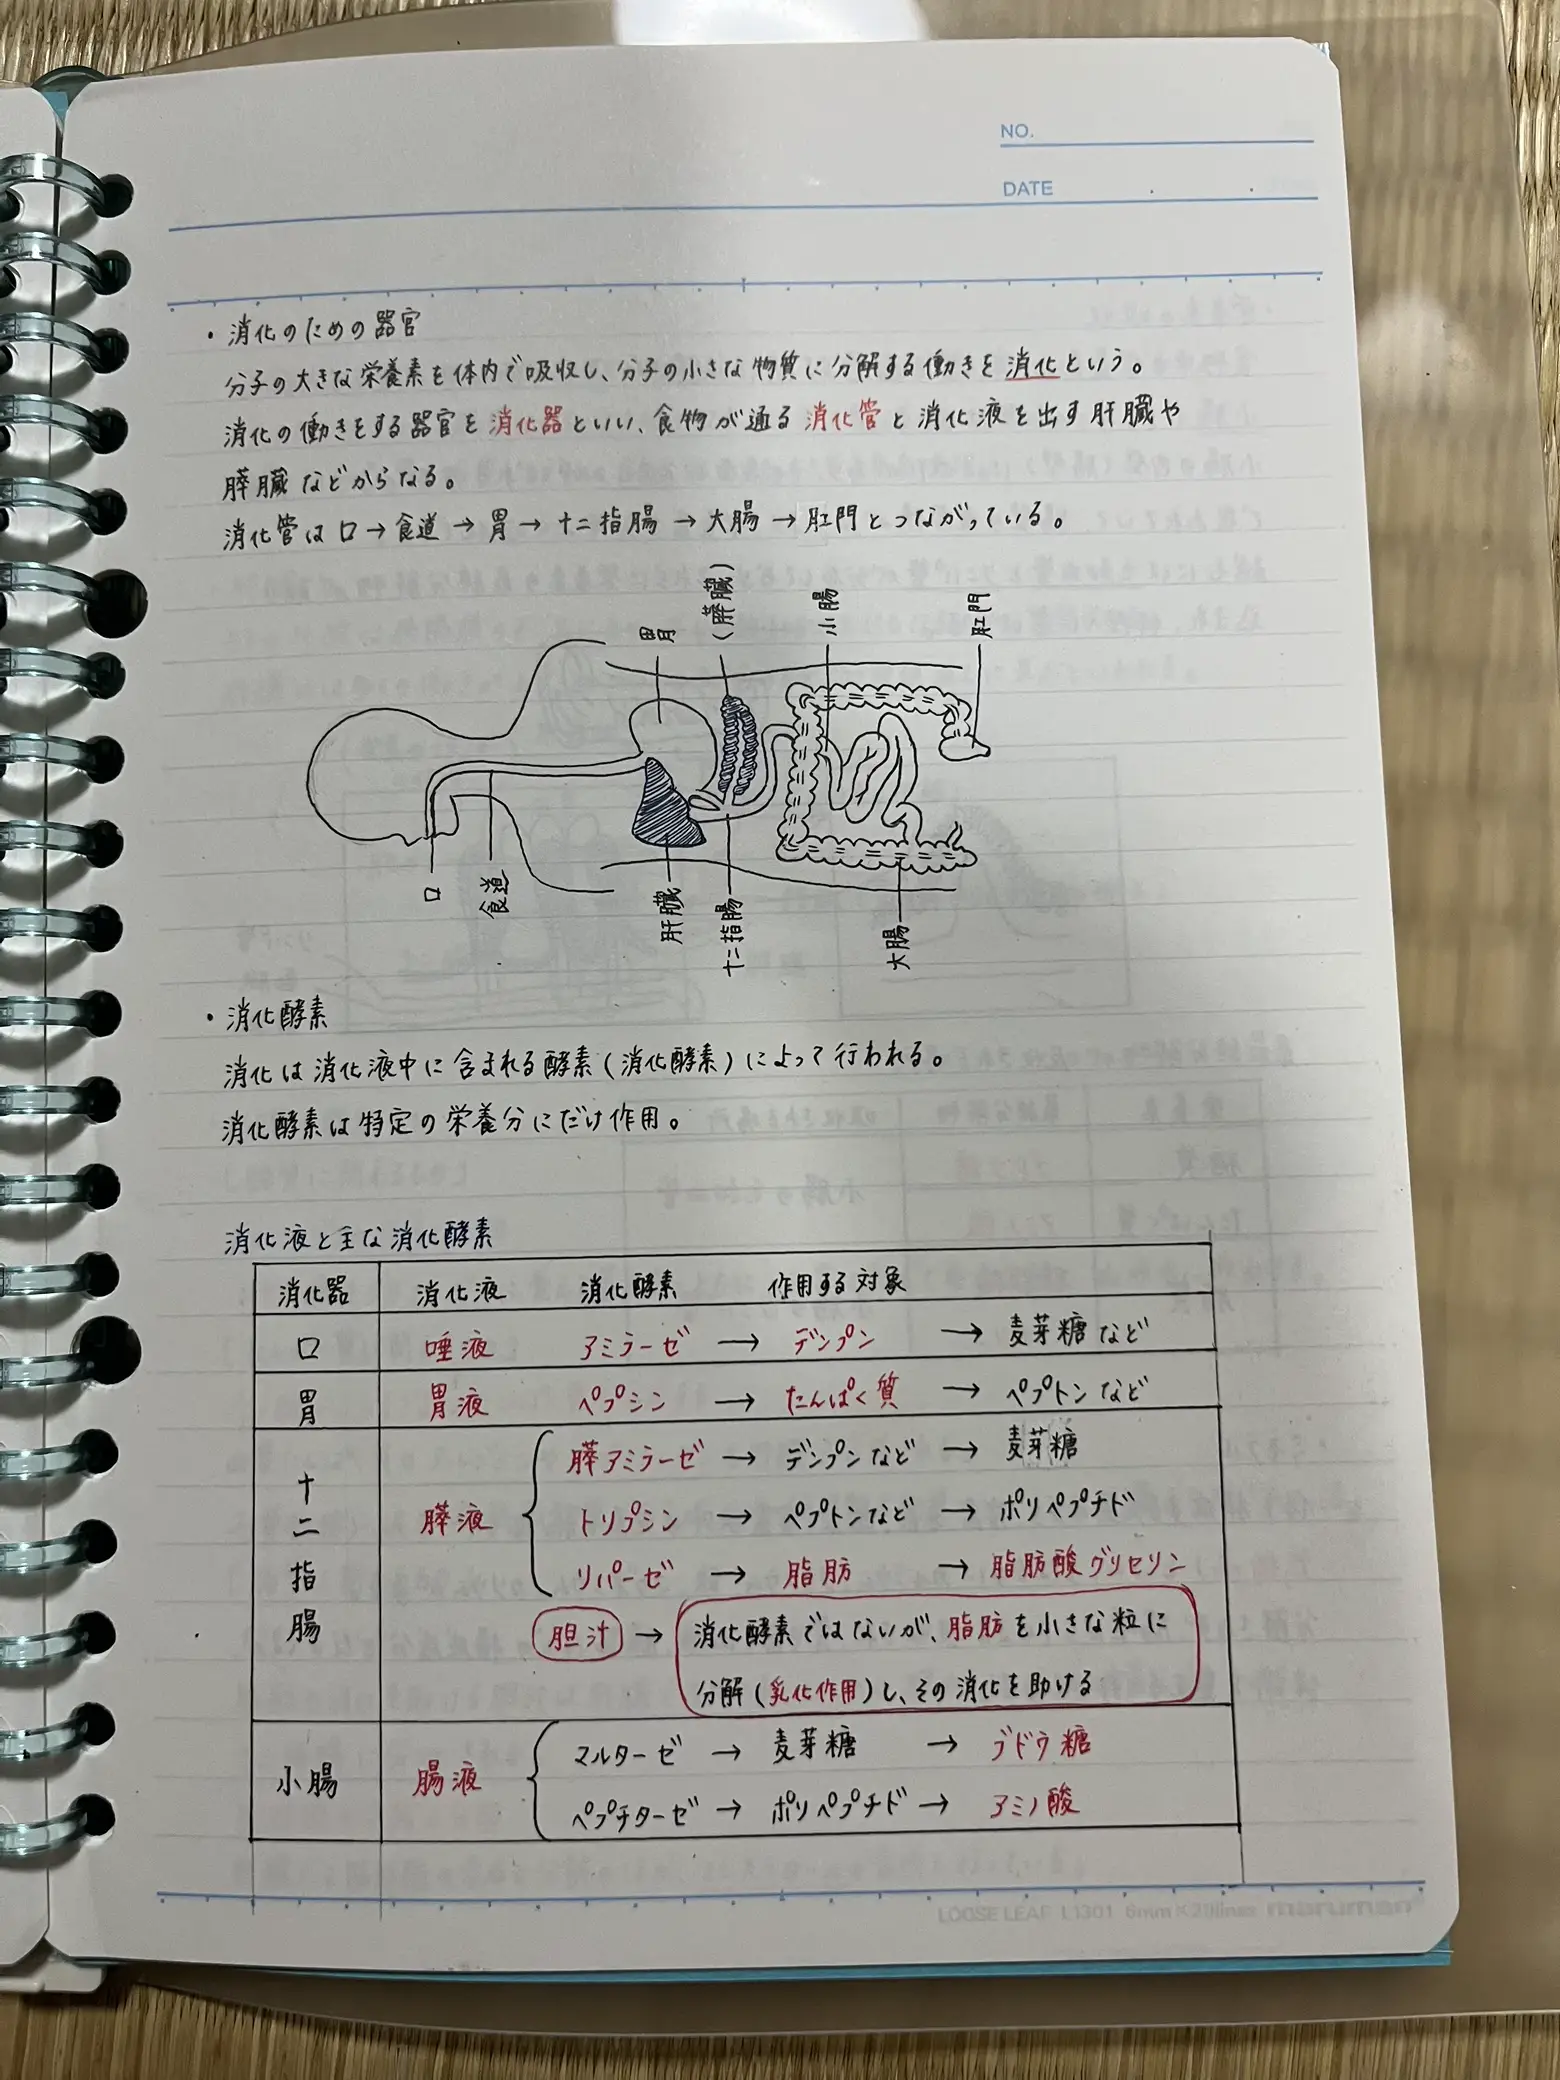 NO.
DATE
・消化のための器官
分子の大きな栄養素を体内で吸収し、分子の小さな物質に分解する働きを消化という。
消化の働きをする器官を消化器といい、食物が通る消化管と消化液を出す肝臓や
膵臓などからなる。
消化管は口→食道→胃→十二指腸→大腸→肛門とつながっている。
胃
(膵臓)
小腸
肛門
口
食道
肝臓
十二指腸
大腸
・消化酵素
消化は消化液中に含まれる酵素(消化酵素)によって行われる。
消化酵素は特定の栄養分にだけ作用。
消化液と主な消化酵素
消化器 消化液 消化酵素 作用する対象
口 唾液 アミラーゼ → デンプン → 麦芽糖など
胃 胃液 ペプシン → たんぱく質 → ペプトンなど
十二指腸 膵液 膵アミラーゼ → デンプンなど → 麦芽糖
トリプシン → ペプトンなど → ポリペプチド
リパーゼ → 脂肪 → 脂肪酸グリセリン
胆汁 → 消化酵素ではないが、脂肪を小さな粒に
分解(乳化作用)し、その消化を助ける
小腸 腸液 マルターゼ → 麦芽糖 → ブドウ糖
ペプチターゼ → ポリペプチド → アミノ酸
LOOSE LEAF L1301 6mm maruman